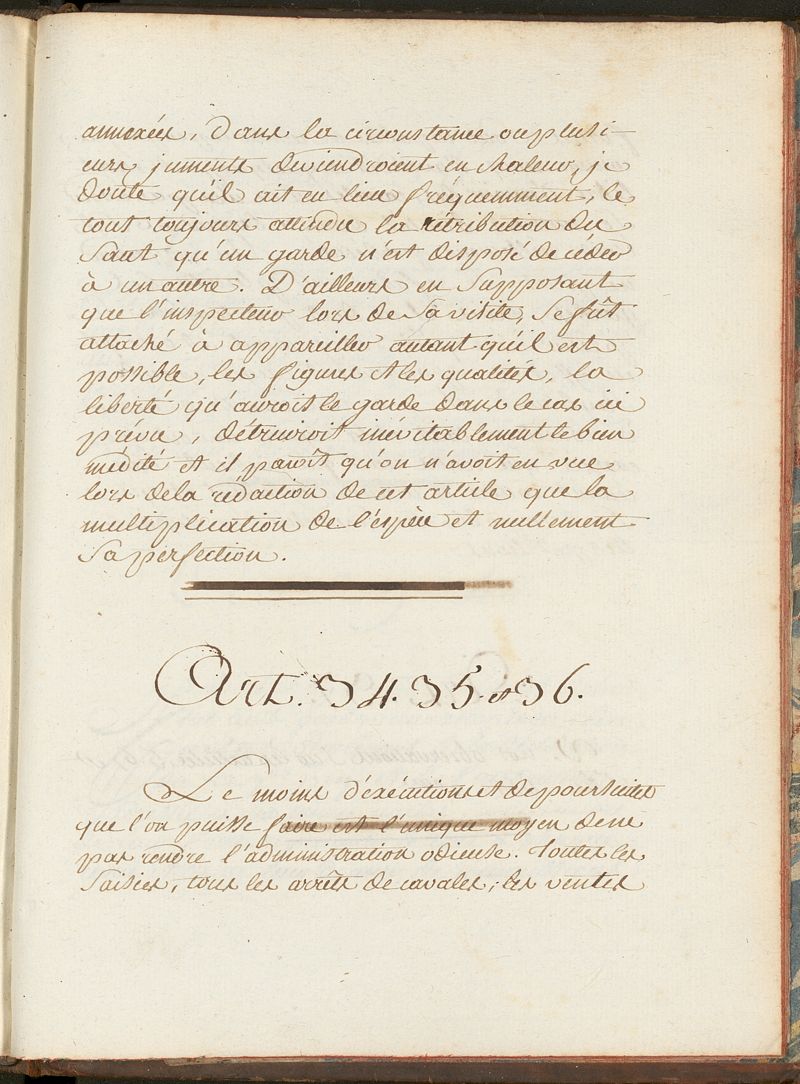 annexées, dans la circonstance ou plusi-
eurs juments deviendroient en chaleur, je
doute qu'il ait eu lieu fréquemment, le
tout toujours attendu la rétribution du
Saut qu'un garde n'est disposé de céder
à un autre. D'ailleurs en Supposant
que l'inspecteur lors de Sa visite, Se fût
attaché à appareiller autant qu'il est
possible, les figures et les qualités, la
liberté qu'auroit le garde dans le cas ici
prévu, détruiroit inévitablement le bien
médité et il paroît qu'on n'avoit en vue
lors de la rédaction de cet article que la
multiplication de l'espèce et nullement
Sa perfection.
Art. 34. 35. et 36.
Le moins d'éxécutions et de poursuites
que l'on puisse faire est l'unique moyen de ne
pas rendre l'administration odieuse. Toutes les
Saisies, tous les arrêts de cavales, les ventes